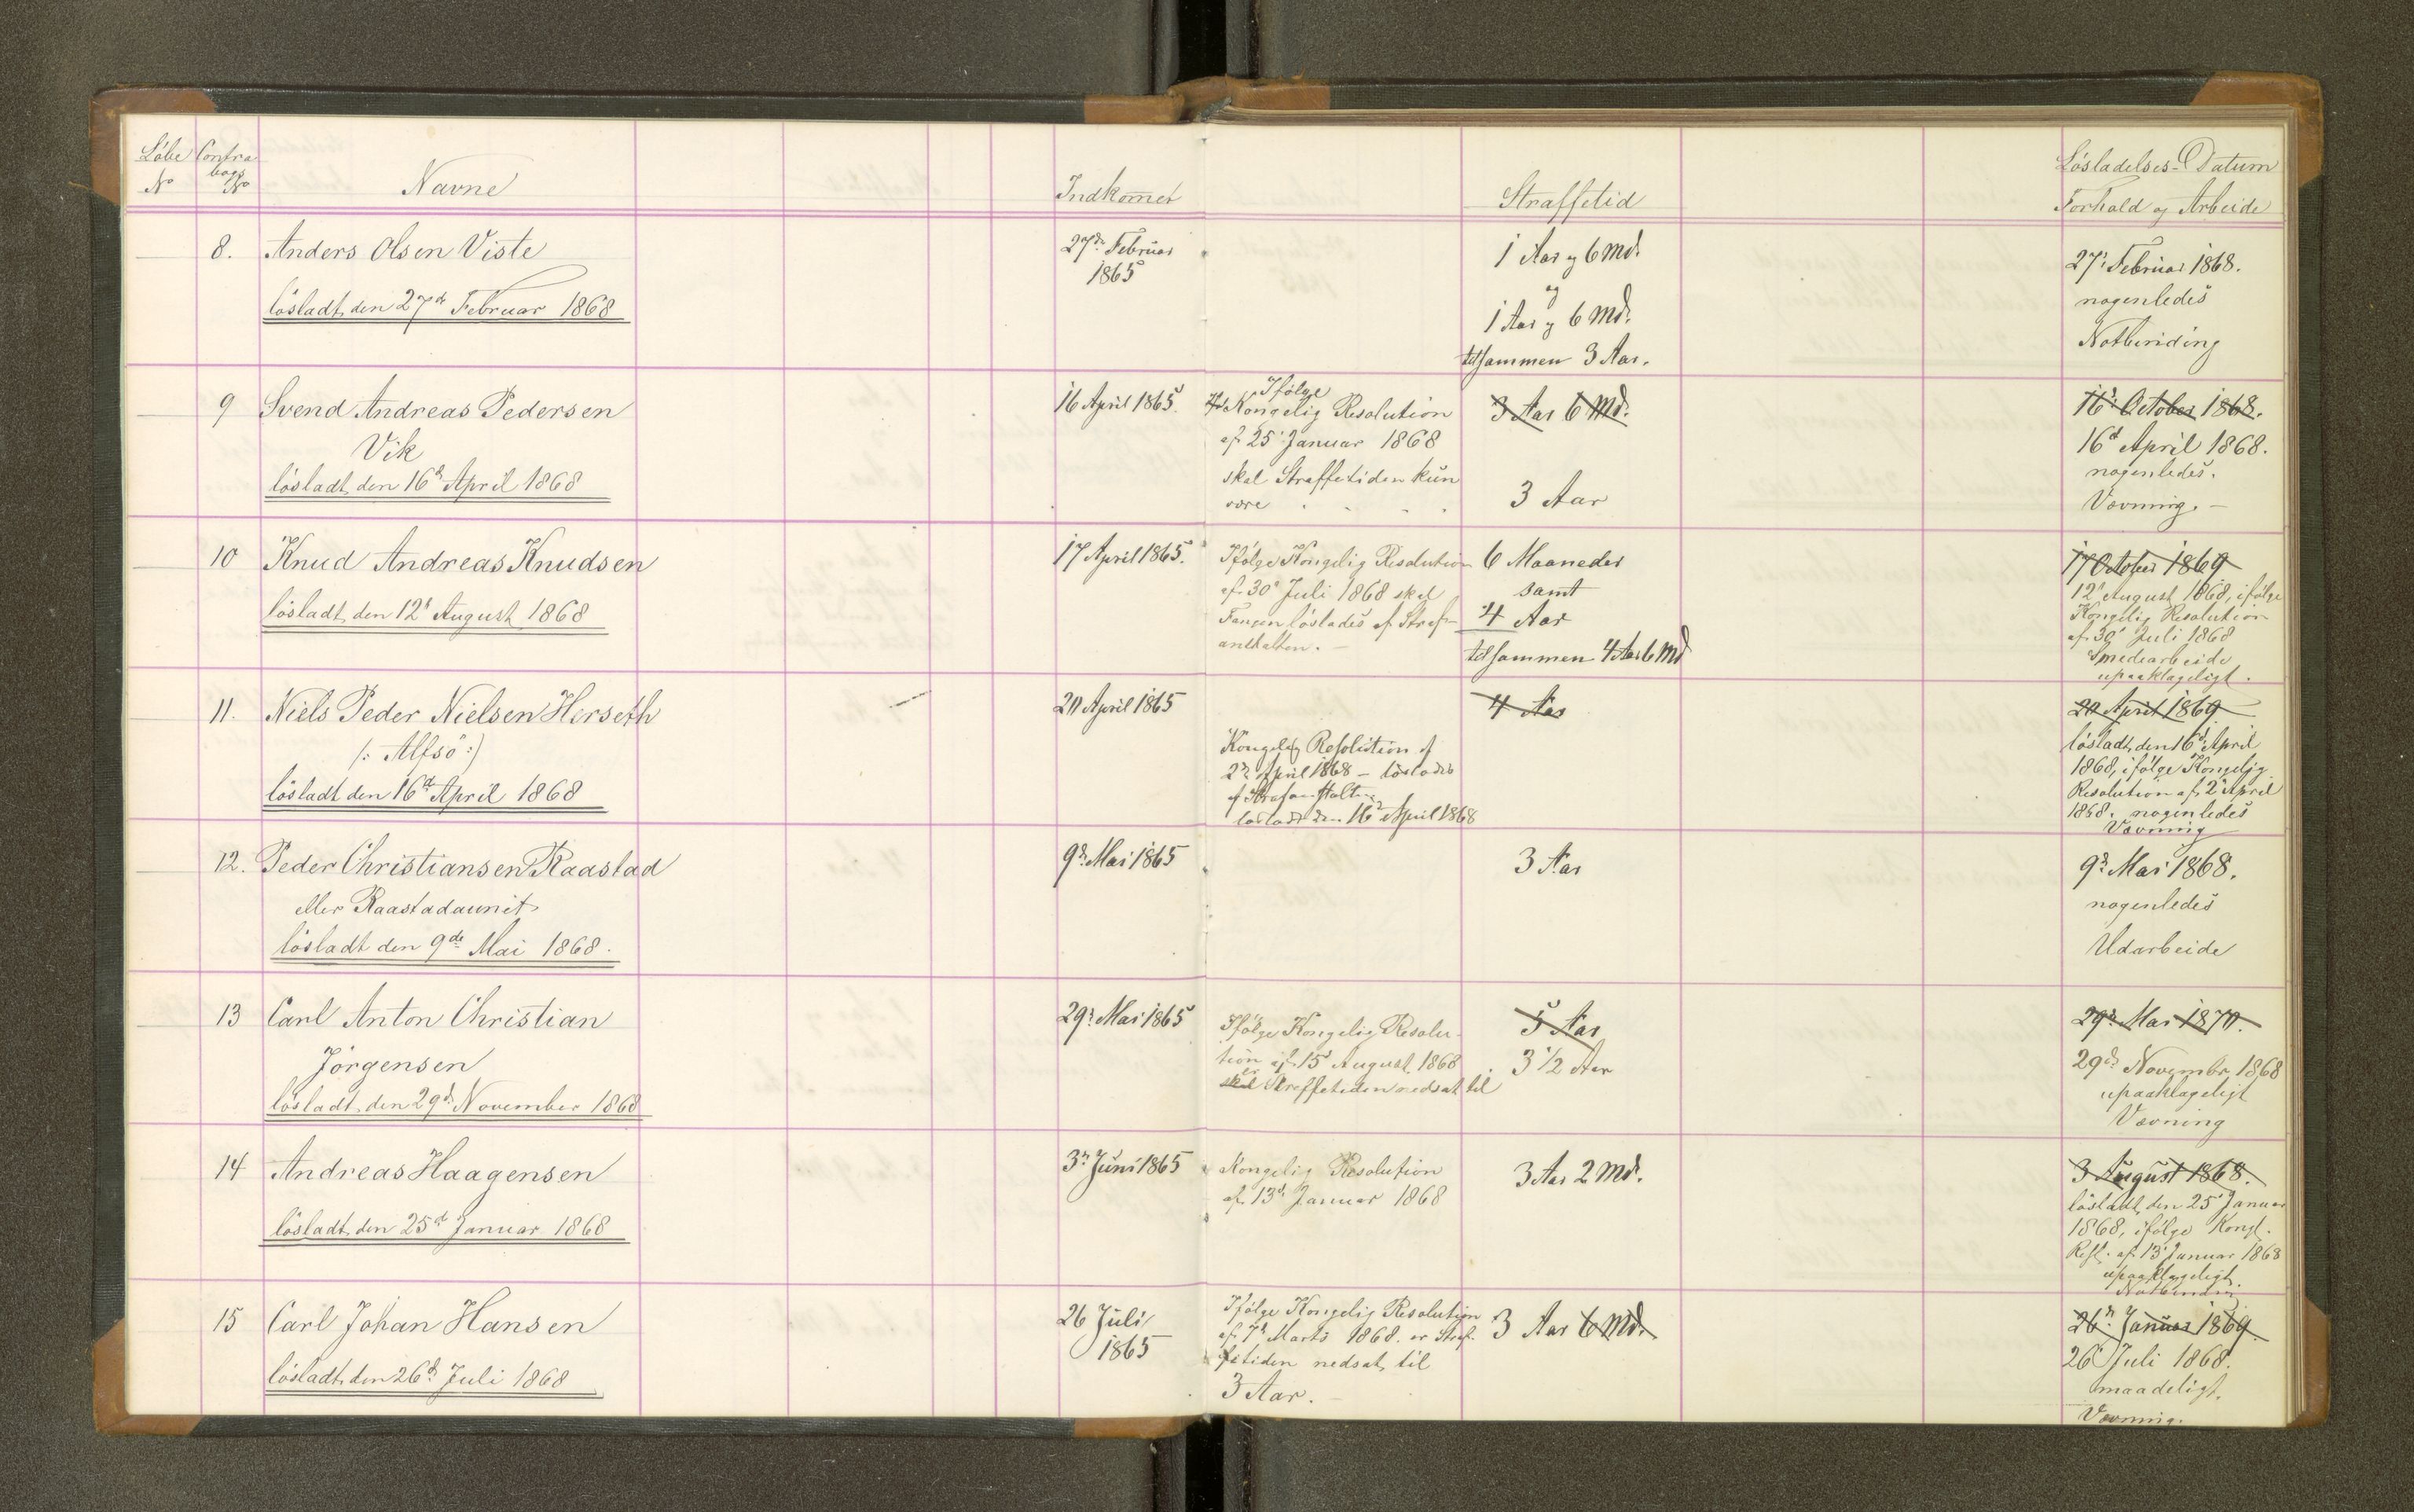 Löbe No
Contra bogs No
Navne
Indkomet
Straffetid
Lösladelses-Datum
Forhold og Arbeide
8. Anders Olsen Viste
lösladt den 27de Februar 1868
27de Februar
1865
1 Aar og 6 Md.
og
1 Aar og 6 Md.
tilsammen 3 Aar.
27. Februar 1868.
nogenledes
Notbinding
9 Svend Andreas Pedersen
Vik
lösladt den 16d April 1868
16 April 1865.
Ifölge
Kongelig Resolution
af 25 Januar 1868
skal Straffetiden kun
være
3 Aar 6 Md.
3 Aar
16. October 1868.
16d April 1868.
nogenledes.
Vævning. -
10 Knud Andreas Knudsen
lösladt den 12t August 1868
17 April 1865.
Ifölge Kongelig Resolution
af 30 Juli 1868 skal
Fangen löslades af Straf-
anstalten. -
6 Maaneder
samt
4 Aar
tilsammen 4 Aar 6 Md
17 October 1869
12t August 1868, ifölge
Kongelig Resolution
af 30t Juli 1868
Smedearbeide
upaaklageligt.
11. Niels Peder Nielsen Herseth
/: Alfsö :/
lösladt den 16d April 1868
20 April 1865
Kongelig Resolution af
2n April 1868 - löslades
af Strafanstalten
lösladt den 16d April 1868
4 Aar
20 April 1869
lösladt den 16d April
1868, ifölge Kongelig
Resolution af 2 April
1868. nogenledes
Vævning
12. Peder Christiansen Raastad
eller Raastadaunit
lösladt den 9de Mai 1868.
9d. Mai 1865
3 Aar
9d. Mai 1868.
nogenledes
Udarbeide
13 Carl Anton Christian
Jörgensen
lösladt den 29d November 1868
29d. Mai 1865
Ifölge Kongelig Resolu-
tion af 15 August 1868
skal er Straffetiden nedsat til
5 Aar
3 1/2 Aar
29d. Mai 1870.
29d Novembr 1868
upaaklageligt
Vævning
14 Andreas Haagensen
lösladt den 25d Januar 1868
3d. Juni 1865
Kongelig Resolution
af 13d Januar 1868
3 Aar 2 Md.
3 August 1868.
lösladt den 25 Januar
1868, ifölge Kongl.
Resl. af 13 Januar 1868
upaaklageligt.
Notbinding
15 Carl Johan Hansen
lösladt den 26d Juli 1868
26 Juli
1865
Ifölge Kongelig Resolution
af 7d Marts 1868. er Straf-
fetiden nedsat til
3 Aar. -
3 Aar 6 Md.
26d. Januar 1869.
26 Juli 1868.
maadeligt.
Vævning.